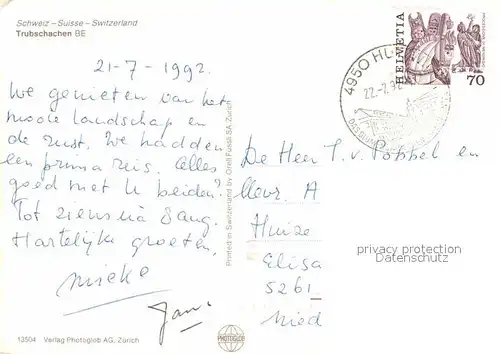 Schweiz – Suisse – Switzerland
Trubschachen BE
21-7-1992.
We genieten van het
mooie landschap en
de rust. We hadden
een prima reis. Alles
goed met U beiden?
Tot ziens na 8 aug.
Hartelijke groeten,
Mieke
Jan.
13504 Verlag Photoglob AG, Zürich
Printed in Switzerland by Orell Füssli SA, Zürich
PHOTOGLOB
4950 HU
22.-7.92
HELVETIA
70
De Heer T. v. Poppel en
Mevr. A
Huize
Elisa
5261
Ned
privacy protection
Datenschutz